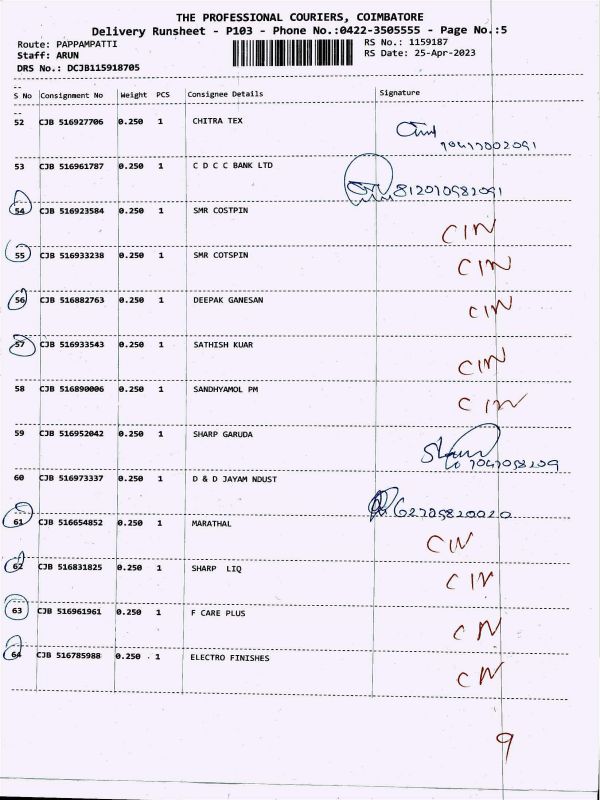 THE PROFESSIONAL COURIERS, COIMBATORE
Delivery Runsheet - P103 - Phone No.:0422-3505555 - Page No.:5
Route: PAPPAMPATTI
RS No.: 1159187
Staff: ARUN
RS Date: 25-Apr-2023
DRS No.: DCJB115918705
S No Consignment No Weight PCS Consignee Details Signature
52 CJB 516927706 0.250 1 CHITRA TEX
53 CJB 516961787 0.250 1 C D C C BANK LTD
54 CJB 516923584 0.250 1 SMR COSTPIN
CIN
55 CJB 516933238 0.250 1 SMR COTSPIN
CIN
56 CJB 516882763 0.250 1 DEEPAK GANESAN
CIN
57 CJB 516933543 0.250 1 SATHISH KUAR
CIN
58 CJB 516890006 0.250 1 SANDHYAMOL PM
CIN
59 CJB 516952042 0.250 1 SHARP GARUDA
60 CJB 516973337 0.250 1 D & D JAYAM NDUST
61 CJB 516654852 0.250 1 MARATHAL
CIN
62 CJB 516831825 0.250 1 SHARP LIQ
CIN
63 CJB 516961961 0.250 1 F CARE PLUS
CN
64 CJB 516785988 0.250 1 ELECTRO FINISHES
CN
9